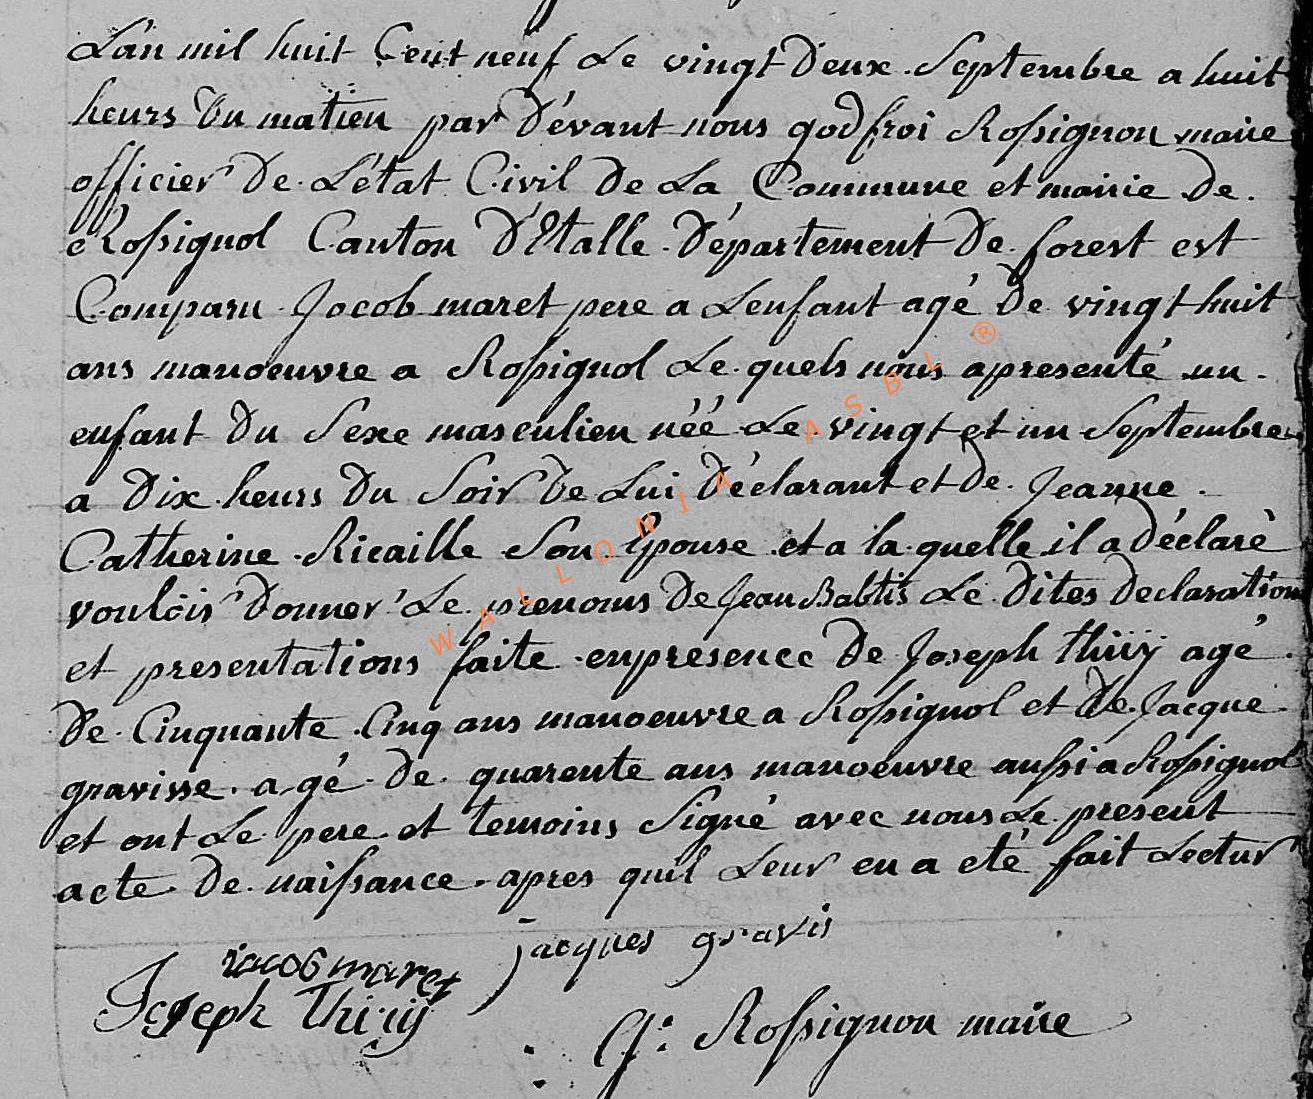 L'an mil huit Cent neuf Le vingt deux Septembre a huit
heurs du matien par dévant nous godfroi Rossignon maire
officier de L'état Civil de La Commune et mairie de
Rossignol Canton d'Etalle département de forest est
Comparu Jocob maret pere a Lenfant agé de vingt huit
ans manoeuvre a Rossignol Le quels nous apresenté un
enfant du Sexe masculien néé Le vingt et un Septembre
a dix heurs du Soir de Lui déclarant et de Jeanne
Catherine Ricaille Son Epouse et a la quelle il a déclaré
vouloir donner Le prenoms de Jean Babtis Le dites declaration
et presentations faite enpresence de Joseph thiry agé
de Cinquante Cinq ans manoeuvre a Rossignol et de Jacque
gravisse agé de quarente ans manoeuvre aussi a Rossignol
et ont Le pere et temoins Signé avec nous Le present
acte de naissance apres quil Leur en a eté fait Lectur
jacques gravis
iacob maret
Joseph Thiriÿ
G: Rossignon maire
WALLONIA ASBL ®